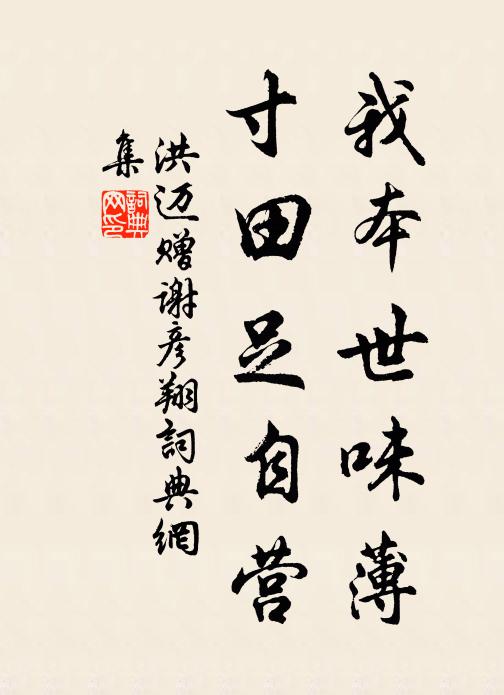 我本世味薄
寸田足自营
洪迈赠谢彦翔詞典網
集
詞典
网印